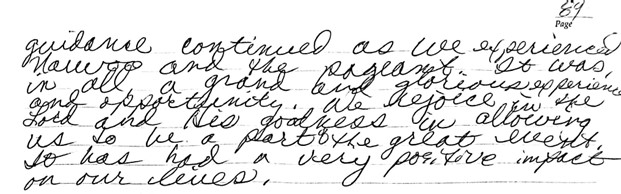 89
Page
guidance continued as we experienced
Nauvoo and the pageant. It was,
in all a grand and glorious experience
and opportunity. We rejoice in the
Lord and His goodness in allowing
us to be a part of the great event.
It has had a very positive impact
on our lives.